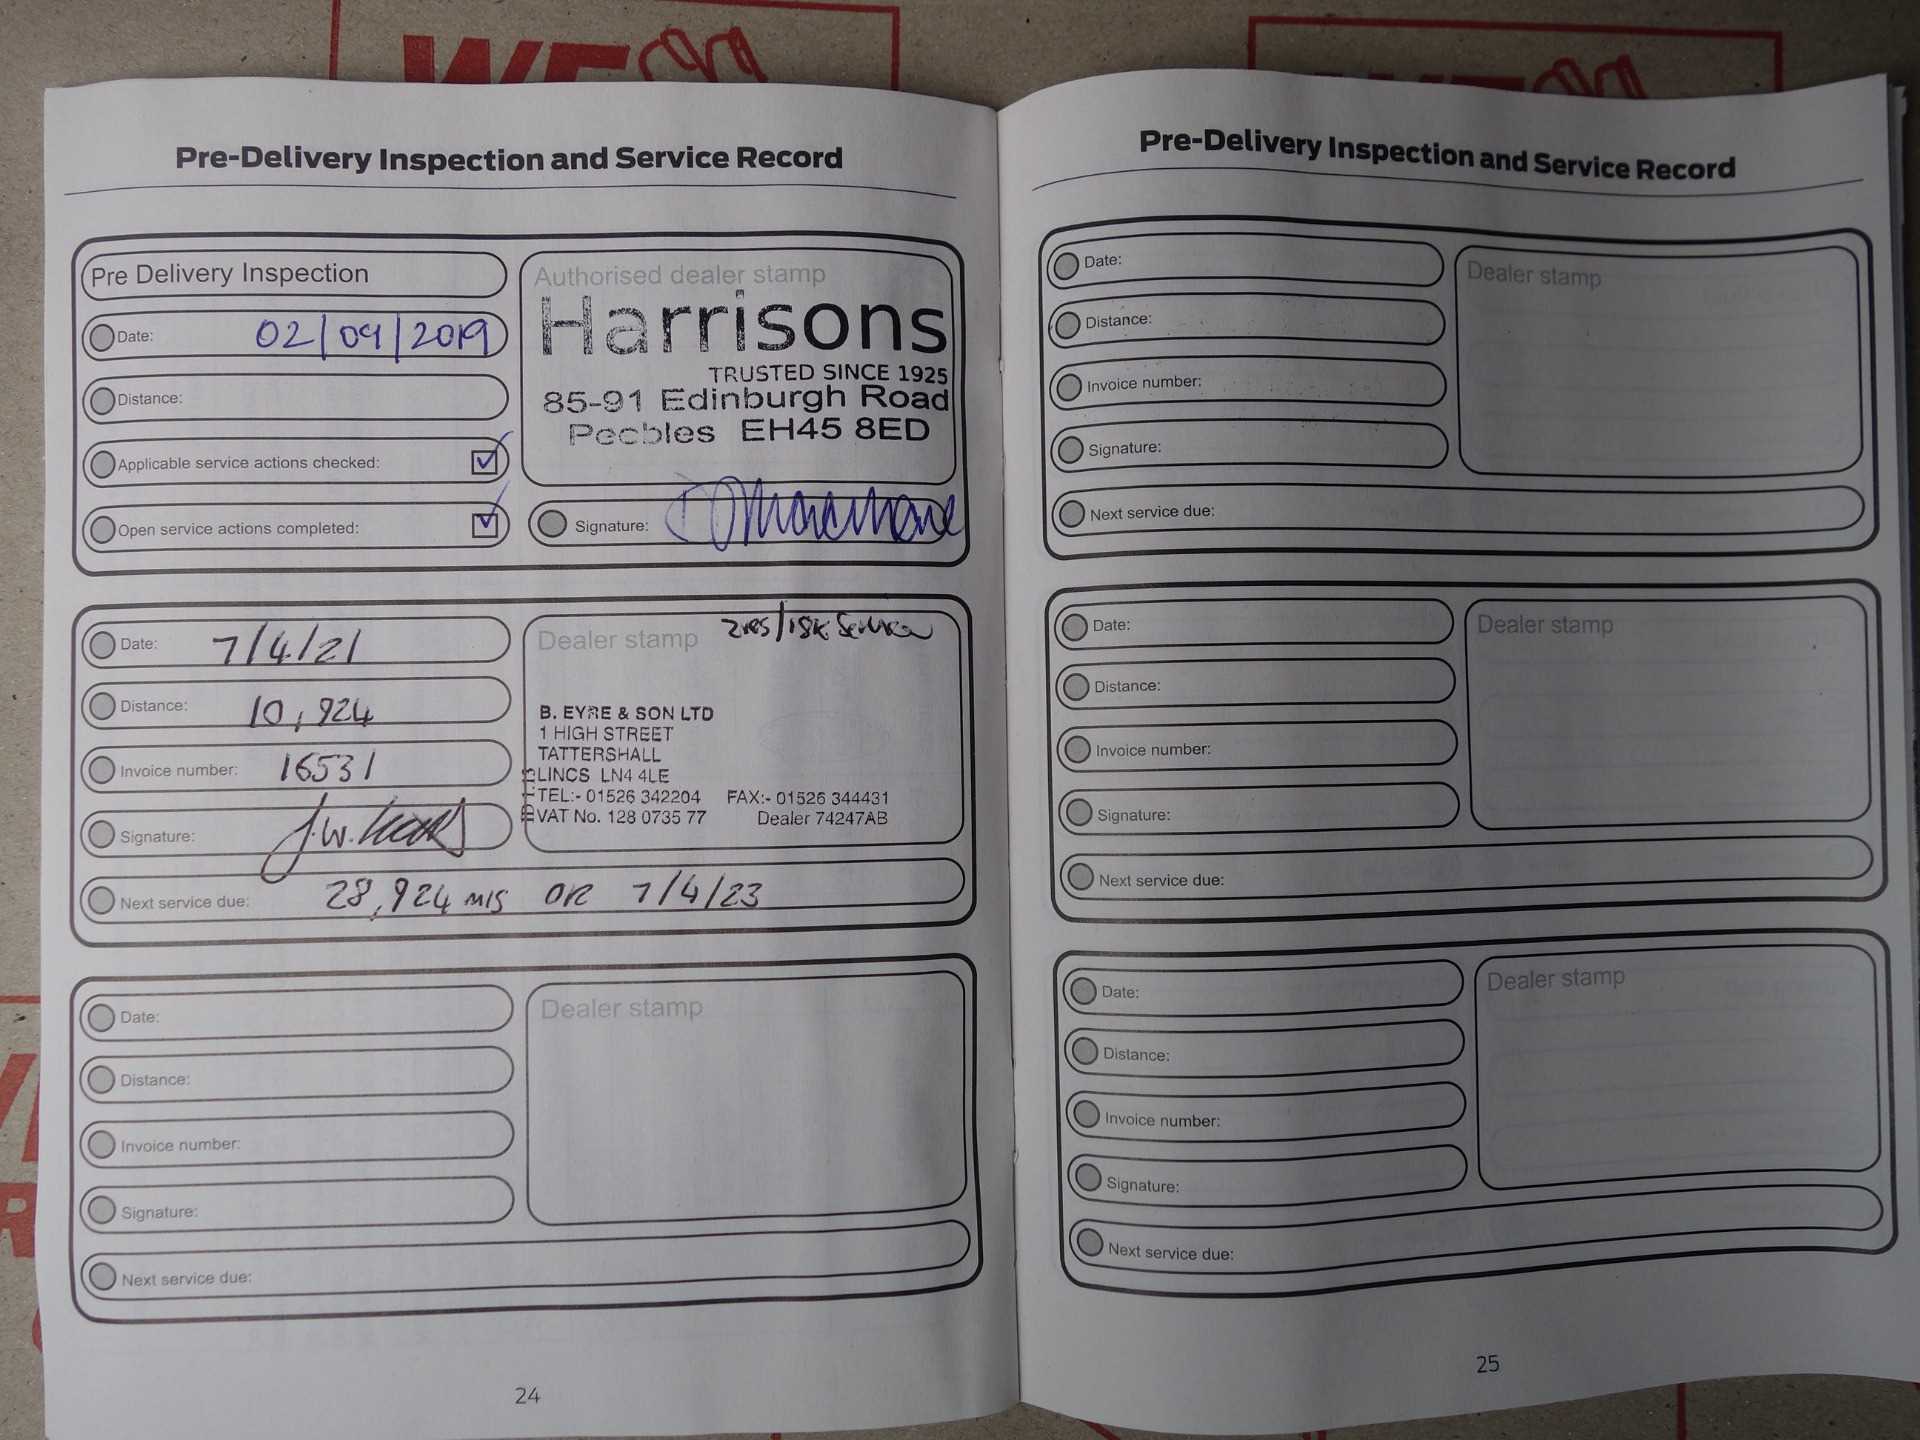 WE
Pre-Delivery Inspection and Service Record
Pre Delivery Inspection
Date: 02/09/2019
Distance:
Applicable service actions checked:
Open service actions completed:
Authorised dealer stamp
Harrisons
TRUSTED SINCE 1925
85-91 Edinburgh Road
Peebles EH45 8ED
Signature:
Date: 7/4/21
Distance: 10,924
Invoice number: 16531
Signature: J.W.
Dealer stamp
2YRS/18K Service
B. EYRE & SON LTD
1 HIGH STREET
TATTERSHALL
LINCS LN4 4LE
TEL:- 01526 342204 FAX:- 01526 344431
VAT No. 128 0735 77 Dealer 74247AB
Next service due: 28,924 MLS OR 7/4/23
Date:
Distance:
Invoice number:
Signature:
Dealer stamp
Next service due:
24
Pre-Delivery Inspection and Service Record
Date:
Distance:
Invoice number:
Signature:
Dealer stamp
Next service due:
Date:
Distance:
Invoice number:
Signature:
Dealer stamp
Next service due:
Date:
Distance:
Invoice number:
Signature:
Dealer stamp
Next service due:
25